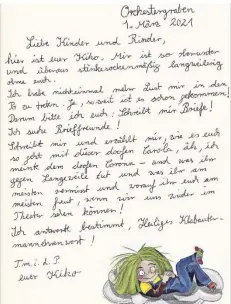 Orchestergraben
1. März 2021
Liebe Kinder und Rinder,
hier ist euer Kiko. Mir ist so
und überaus stinksockenmäßig langweilig
ohne euch.
Ich habe nichteinmal mehr Lust mir in den
Po zu treten. Ja, so weit ist es schon gekommen!
Darum bitte ich euch: Schreibt mir Briefe!
Ich suche Brieffreunde!
Schreibt mir und erzählt mir, wie es euch
so geht mit dieser doofen Carola, äh, ich
meine den doofen Corona - und was ihr
gegen Langeweile tut und was ihr am
meisten vermisst und worauf ihr euch am
meisten freut, wenn wir uns wieder im
Theater sehen können!
Ich antworte bestimmt, Heiliges Klabauter-
mannehrenwort!
I.m.i.L.P
euer Kiko